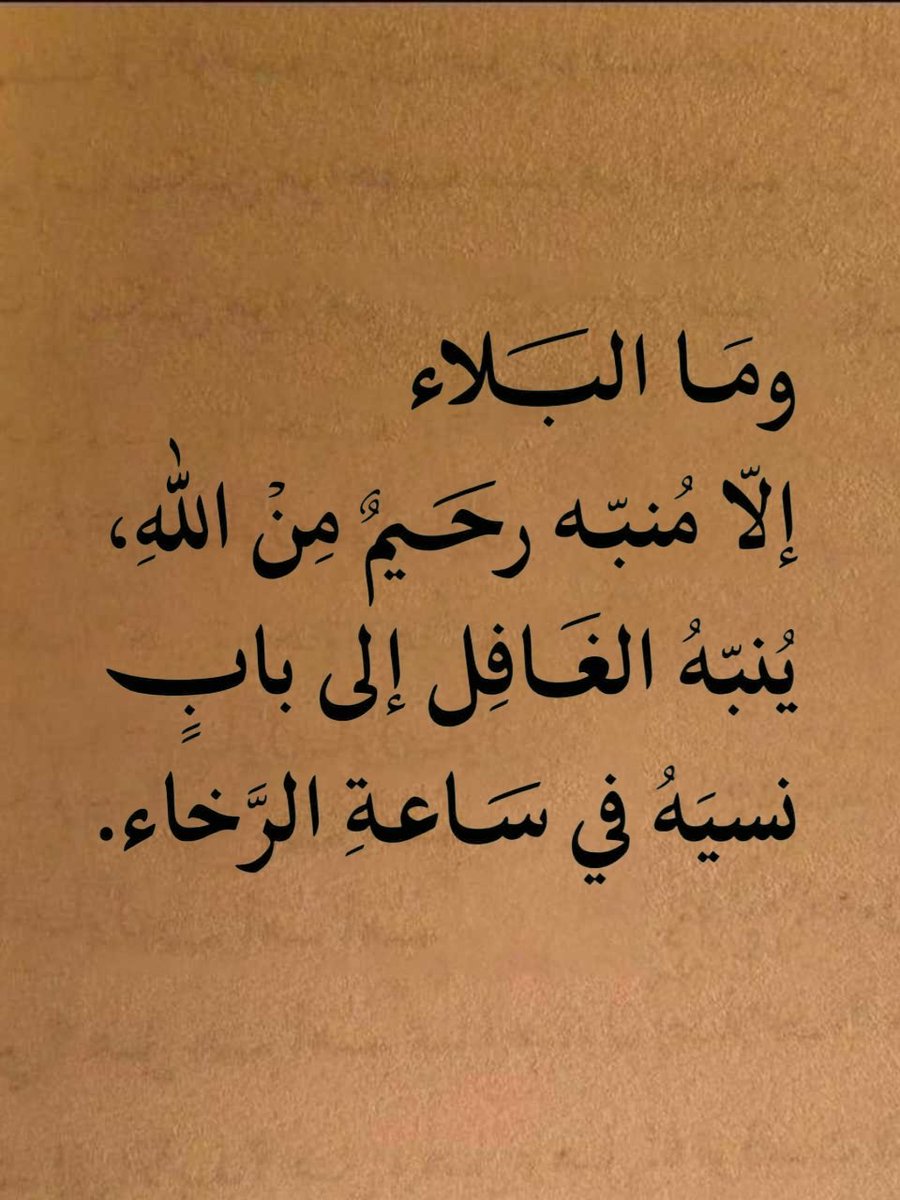 ومَا البَلاء
إلّا مُنبّه رحَيمٌ مِنْ اللهِ،
يُنبّهُ الغَافِل إلى بابٍ
نسيَهُ في سَاعةِ الرَّخاء.